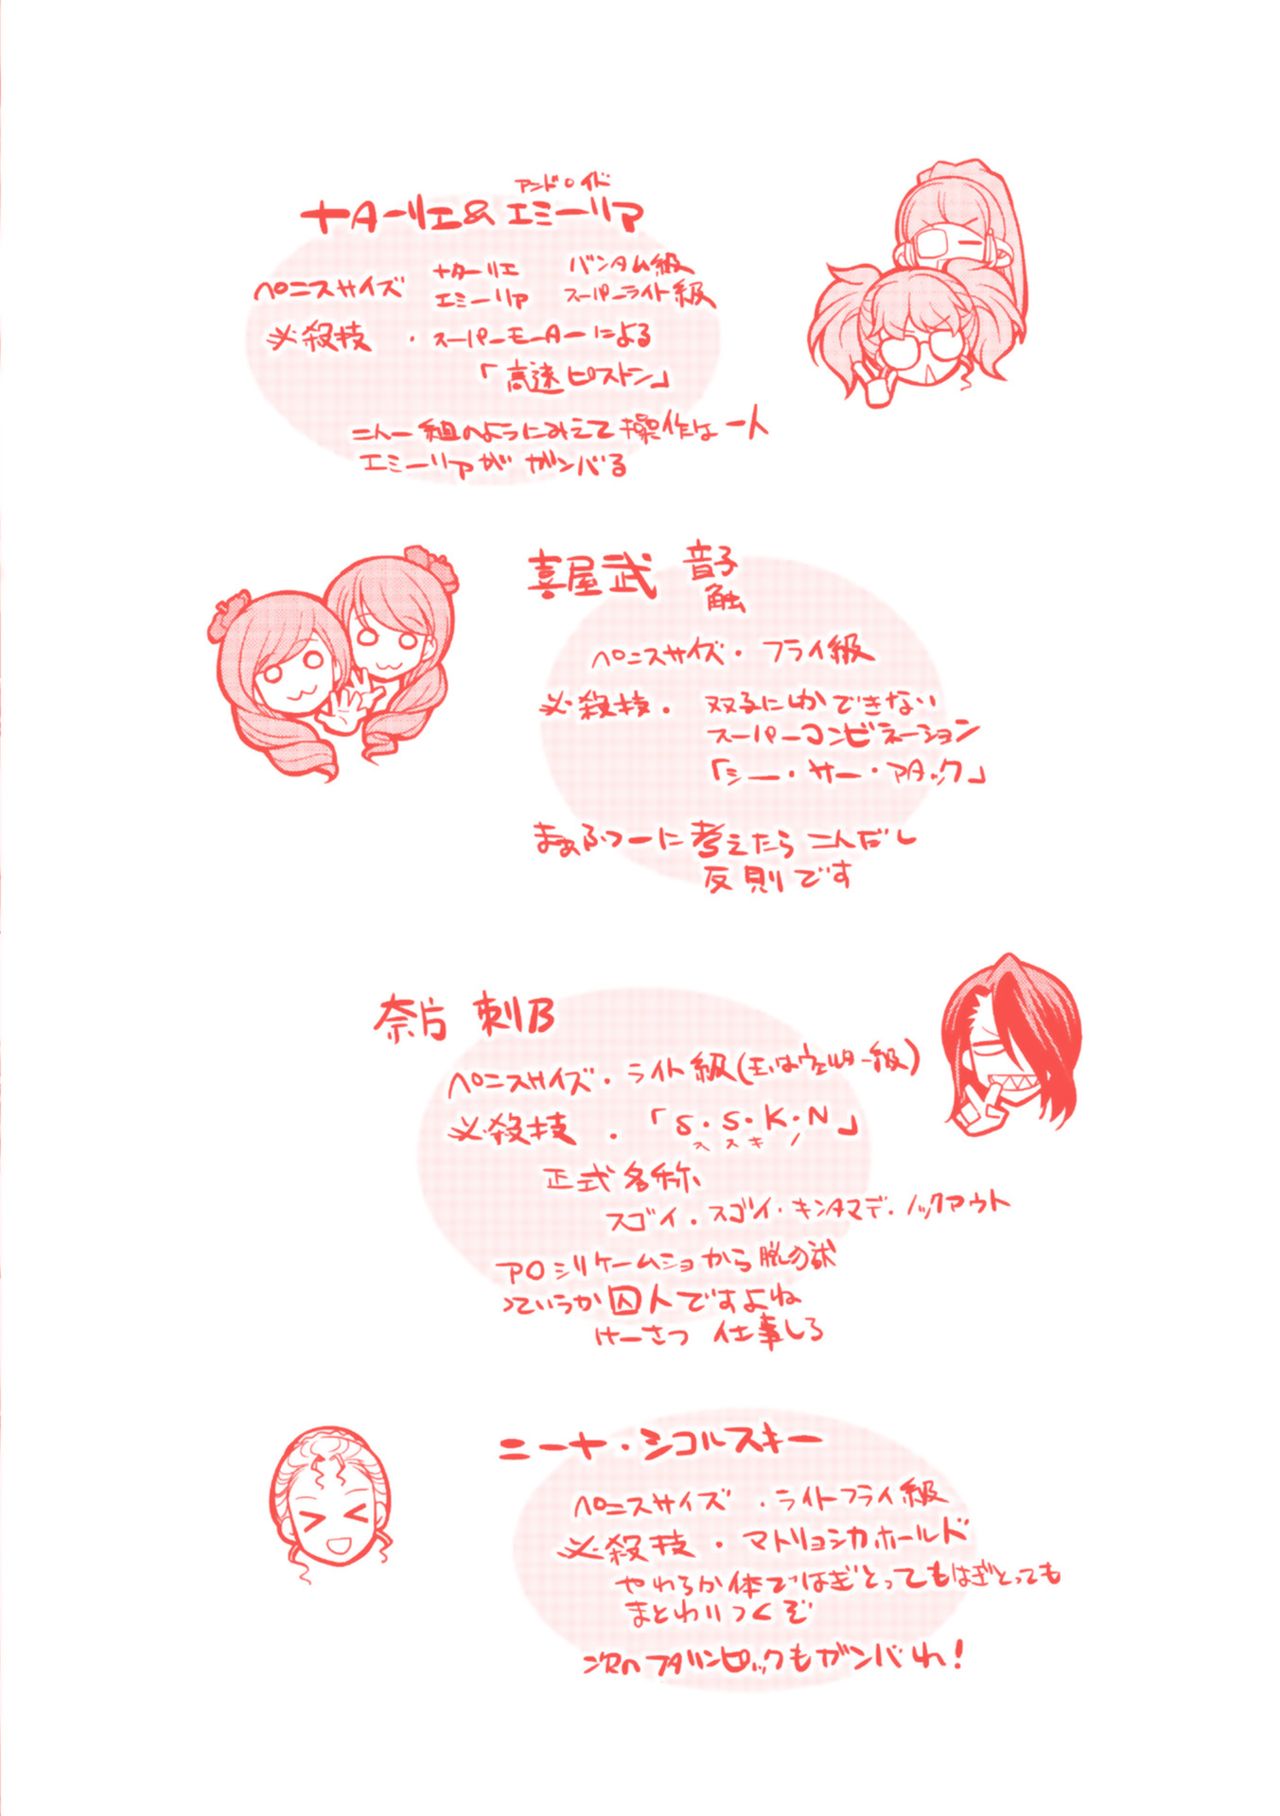 アンドロイド
ナターリエ&エミーリア
ペニスサイズ ナターリエ バンタム級
エミーリア スーパーライト級
必殺技・スーパーモーターによる
「高速ピストン」
二人一組のようにみえて操作は一人
エミーリアがガンバる
喜屋武 音子
触
ペニスサイズ・フライ級
必殺技・双子にしかできない
スーパーコンビネーション
「シー・サー・アタック」
まぁふつーに考えたら二人だし
反則です
奈片 刺B
ペニスサイズ・ライト級(玉はウェルター級)
必殺技・「S・S・K・N」
ススキノ
正式名称
スゴイ・スゴイ・キンタマデ・ノックアウト
アロシリケームショから脱獄
っていうか囚人ですよね
けーさつ 仕事しろ
ニーナ・シコルスキー
ペニスサイズ・ライトフライ級
必殺技・マトリョシカホールド
やわらか体ではぎとってもはぎとっても
まとわりつくぞ
次のフタリンピックもガンバれ!